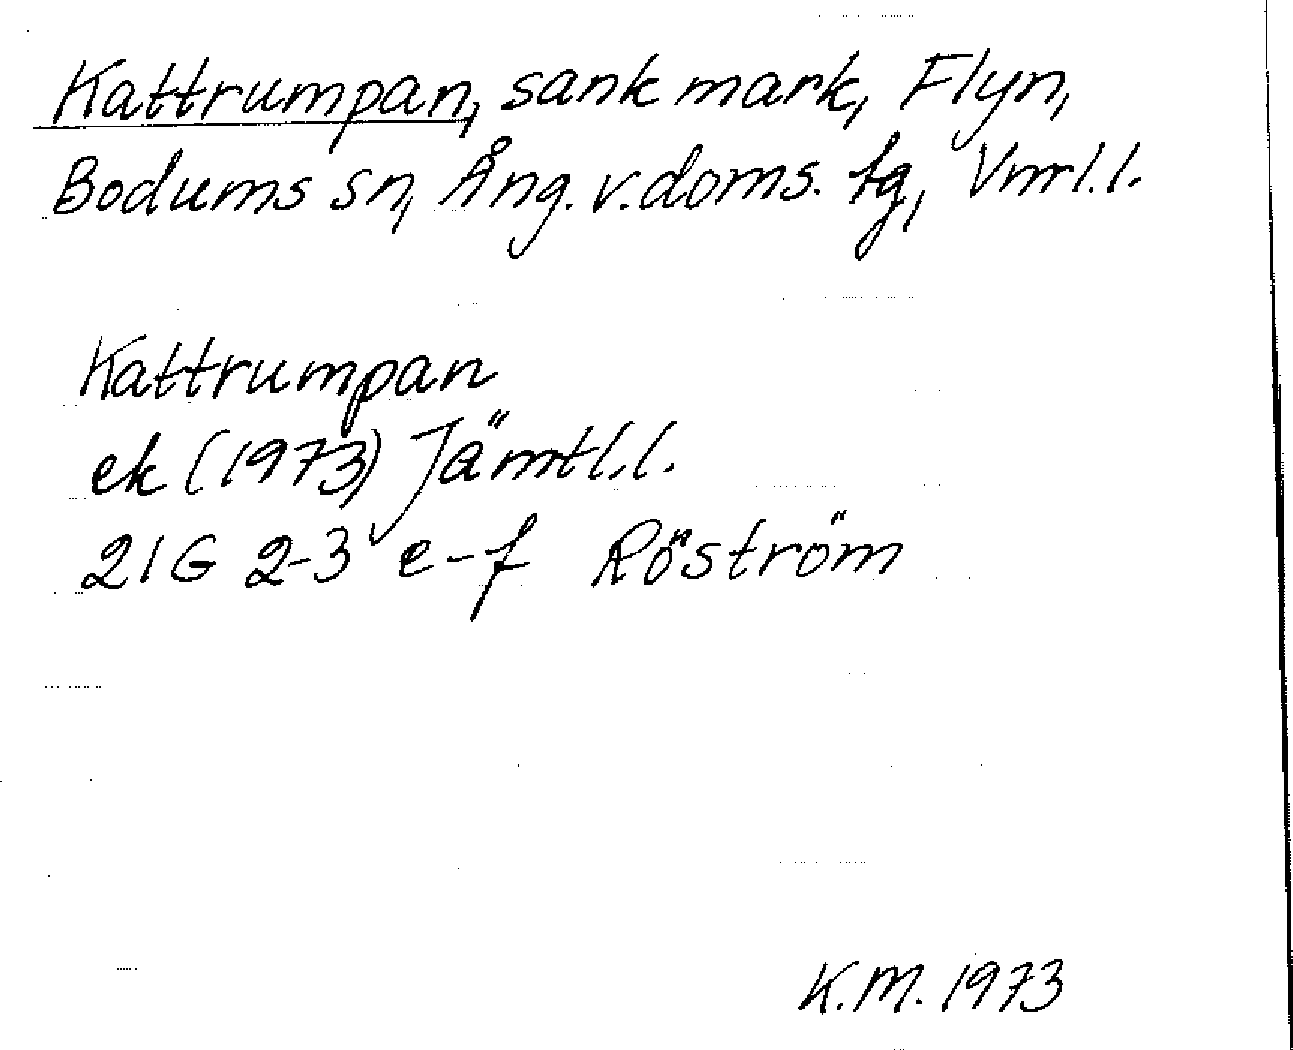 Kattrumpan, sank mark, Flyn,
Bodums sn, Ång. v. doms. tg, Vnrl.l.
Kattrumpan
ek (1973) Jämtl.l.
21G 2-3 e-f Röström
K.M. 1973